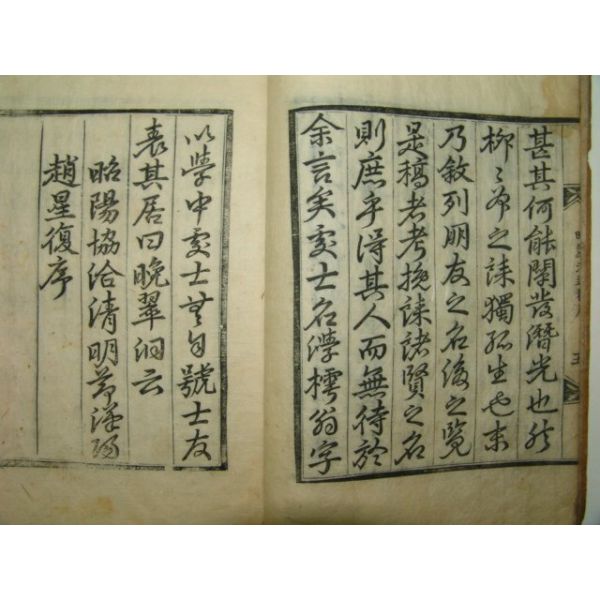 甚其何能闡發潛光也然
柳〻州之誄獨孤生也末
乃敘列朋友之名後之覽
是稿者考挽誄諸賢之名
則庶乎得其人而無待於
余言矣處士名樗翁字
以學申處士無自號士友
表其居曰晩翠云
昭陽協洽清明節漢陽
趙星復序
五